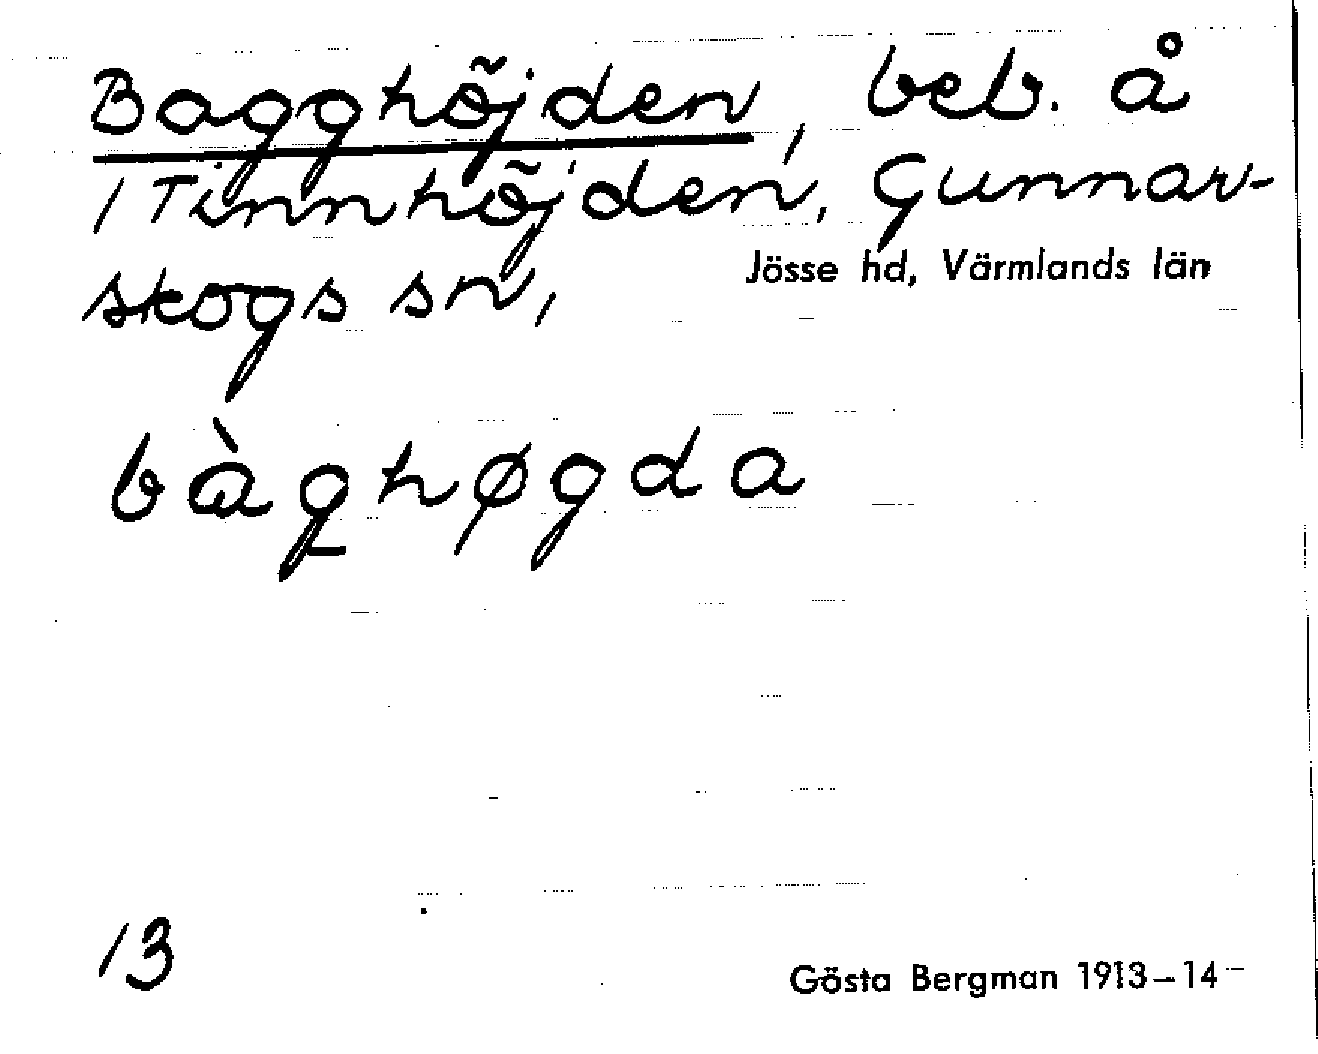 Bagghöjden, beb. å
1 Tinnhöjden, Gunnar-
skogs sn, Jösse hd, Värmlands län
bàghøgda
13
Gösta Bergman 1913-14